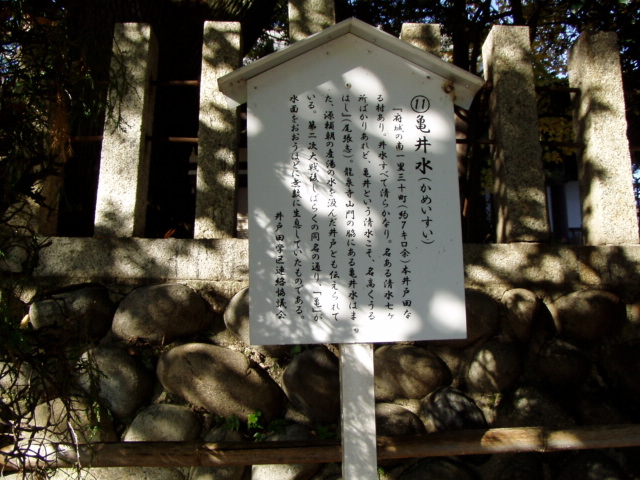 ⑪亀井水(かめいすい)
「府城の南一里三十町(約7キロ余)本井戸田な
る村あり。井水すべて清らかなり。名ある清水七ヶ
所ばかりあれど、亀井という清水こそ、名高くうる
はし」(尾張志)。龍泉寺山門の脇にある亀井水はま
た、源頼朝の産湯の水を汲んだ井戸とも伝えられて
いる。第二次大戦後しばらくの間名の通り、「亀」が
水面をおおうほどに無数に生息していたものである。
井戸田学区連絡協議会